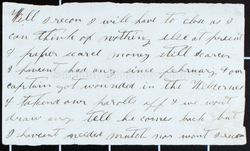 Well I recon I will have to close as I
can think of nothing else at present
& paper scarce money still scarcer
I havent had any since february & our
captain got wounded in the Wilderness
& taken our parolls off & we wont
draw any tell he comes back but
I havent needed mutch nor wont I recon